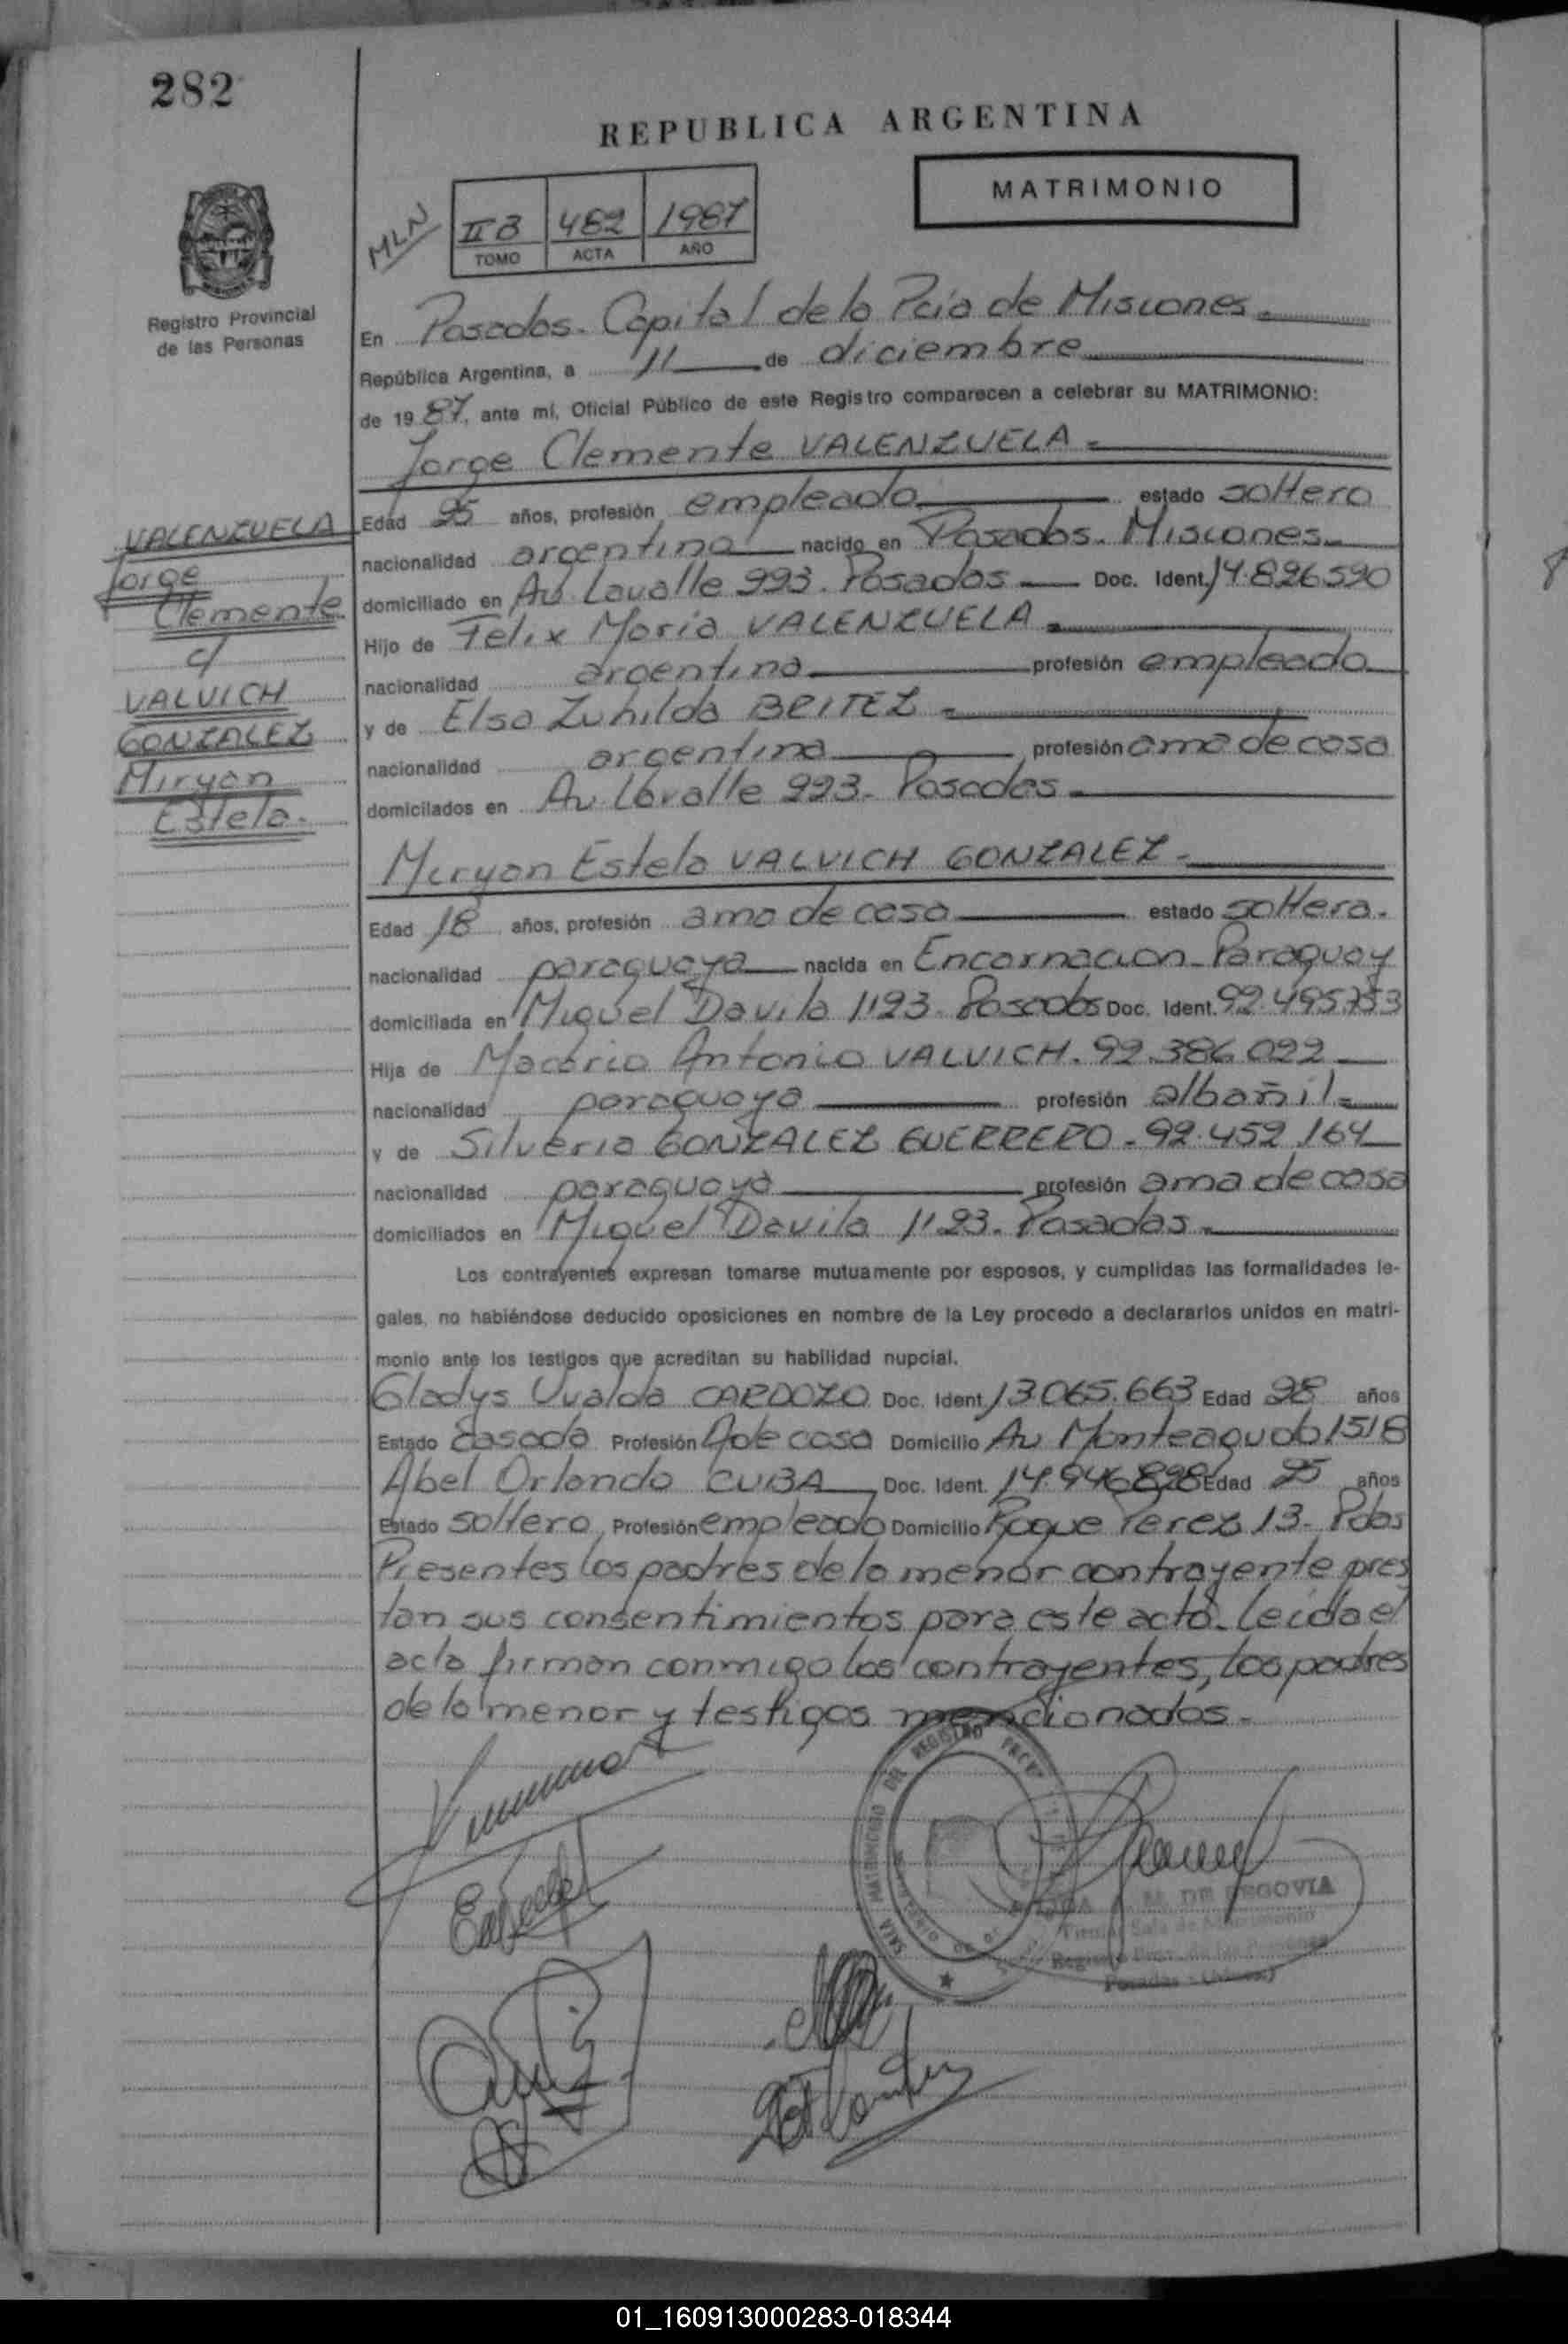 282
REPUBLICA ARGENTINA
MATRIMONIO
MLN
II B 482 1987
TOMO ACTA AÑO
Registro Provincial
de las Personas
En Posadas. Capital de la Pcia de Misiones
República Argentina, a 11 de diciembre
de 1987, ante mí, Oficial Público de este Registro comparecen a celebrar su MATRIMONIO:
Jorge Clemente VALENZUELA
VALENZUELA
Jorge
Clemente
c/
VALVICH
GONZALEZ
Miryan
Estela.
Edad 25 años, profesión empleado estado soltero
nacionalidad argentina nacido en Posadas. Misiones
domiciliado en Av. Lavalle 993. Posadas Doc. Ident. 14.826590
Hijo de Felix Maria VALENZUELA
nacionalidad argentina profesión empleado
y de Elsa Zunilda BRITEZ
nacionalidad argentina profesión ama de casa
domicilados en Av. Lavalle 993. Posadas
Miryan Estela VALVICH GONZALEZ
Edad 18 años, profesión ama de casa estado soltera.
nacionalidad paraguaya nacida en Encarnacion-Paraguay
domiciliada en Miguel Davila 1123. Posadas Doc. Ident. 92.495.753
Hija de Macario Antonio VALVICH. 92.386.022
nacionalidad paraguaya profesión albañil
y de Silveria GONZALEZ GUERRERO. 92.452.164
nacionalidad paraguaya profesión ama de casa
domiciliados en Miguel Davila 1123. Posadas
Los contrayentes expresan tomarse mutuamente por esposos, y cumplidas las formalidades le-
gales, no habiéndose deducido oposiciones en nombre de la Ley procedo a declararlos unidos en matri-
monio ante los testigos que acreditan su habilidad nupcial.
Gladys Uvalda CARDOZO Doc. Ident. 13.065.663 Edad 28 años
Estado casada Profesión A de casa Domicilio Av Monteagudo 1518
Abel Orlando CUBA Doc. Ident. 14.946898 Edad 25 años
Estado soltero Profesión empleado Domicilio Roque Perez 13. Pdas
Presentes los padres de la menor contrayente pres
tan sus consentimientos para este acto. Leida el
acta firman conmigo los contrayentes, los padres
de la menor y testigos mencionados.
SALA MATRIMONIO DE REGISTRO
M. DE SEGOVIA
Sala de Matrimonio
Posadas
01_160913000283-018344